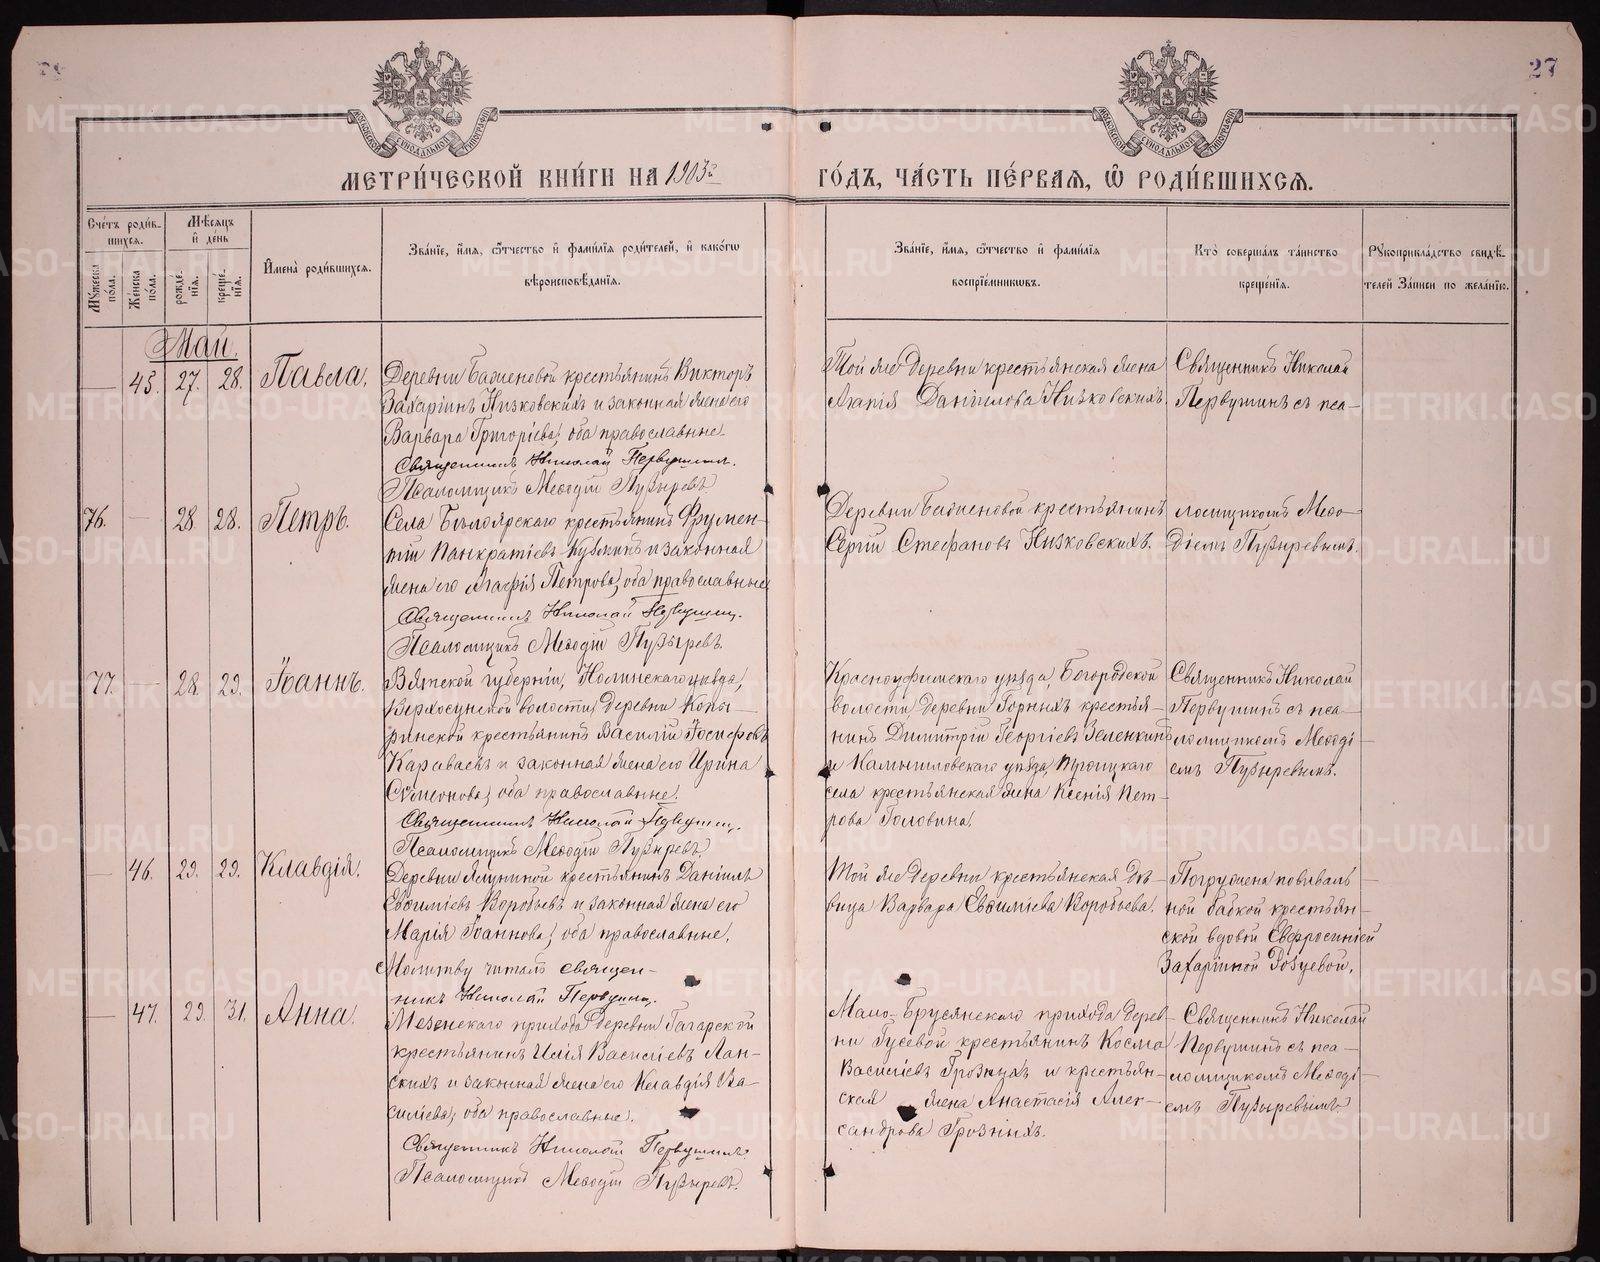 27
МЕТРИ́ЧЕСКОЙ КНИ́ГИ НА 1903й ГО́ДЪ, ЧА́СТЬ ПЕ́РВАЯ, Ѡ РОДИ́ВШИХСЯ.
Сче́тъ роди́в-
шихся.
Му́жеска по́ла.
Же́нска по́ла.
Мѣ́сяцъ и҆ де́нь
рожде́-
нїя.
креще́-
нїя.
И҆мена̀ роди́вшихся.
Зва́нїе, и҆́мя, ѻ҆́тчество и҆ фами́лїя роди́телей, и҆ како́гѡ
вѣроисповѣ́данїя.
Зва́нїе, и҆́мя, ѻ҆́тчество и҆ фами́лїя
воспрїе́мниковъ.
Кто̀ соверша́лъ та́инство
креще́нїя.
Рꙋкоприкла́дство свидѣ́-
телей за́писи по жела́нїю.
Май.
45. 27. 28. Павла.
Деревни Баженовой крестьянинъ Викторъ
Захаріинъ Низковскихъ и законная жена его
Варвара Григоріева; оба православные.
Священникъ Николай Первушинъ.
Псаломщикъ Меѳодій Пузыревъ.
Той же деревни крестьянская жена
Агапія Даніилова Низковскихъ.
Священникъ Николай
Первушинъ съ пса-
76. 28. 28. Петръ.
Села Бѣлоярскаго крестьянинъ Фрумен-
тій Панкратіевъ и законная
жена его Агафія Петрова; оба православные
Священникъ Николай Первушинъ.
Псаломщикъ Меѳодій Пузыревъ.
Деревни Баженовой крестьянинъ
Сергій Стефановъ Низковскихъ.
ломщикомъ Меѳо-
діемъ Пузыревымъ.
77. 28. 29. Іоаннъ.
Вятской губерніи, Нолинскаго уѣзда,
Верхосунской волости, деревни Копы-
рянской крестьянинъ Василій Іосифовъ
Караваевъ и законная жена его Ирина
Симеонова; оба православные.
Священникъ Николай Первушинъ.
Псаломщикъ Меѳодій Пузыревъ.
Красноуфимскаго уѣзда, Богородской
волости, деревни Горныхъ крестья-
нинъ Димитрій Георгіевъ Зеленкинъ
и Камышловскаго уѣзда,
села крестьянская жена Ксенія Пет-
рова Головина.
Священникъ Николай
Первушинъ съ пса-
ломщикомъ Меѳоді-
емъ Пузыревымъ.
46. 29. 29. Клавдія.
Деревни Ялуниной крестьянинъ Даніилъ
Евѳиміевъ Воробьевъ и законная жена его
Марія Іоаннова; оба православные.
Молитву читалъ священ-
никъ Николай Первушинъ.
Той же деревни крестьянская дѣ-
вица Варвара Евѳиміева Воробьева.
Погружена повиваль-
ной бабкой крестьян-
ской вдовой Евфросиніей
Захаріиной
47. 29. 31. Анна.
Мезенскаго прихода деревни Гагарской
крестьянинъ Илія Василіевъ Лан-
скихъ и законная жена его Клавдія Ва-
силіева; оба православные.
Священникъ Николай Первушинъ.
Псаломщикъ Меѳодій Пузыревъ.
Мало-Брусянскаго прихода дерев-
ни Гусевой крестьянинъ Косма
Василіевъ Грозныхъ и крестьян-
ская жена Анастасія Алек-
сандрова Грозныхъ.
Священникъ Николай
Первушинъ съ пса-
ломщикомъ Меѳоді-
емъ Пузыревымъ.
METRIKI.GASO-URAL.RU